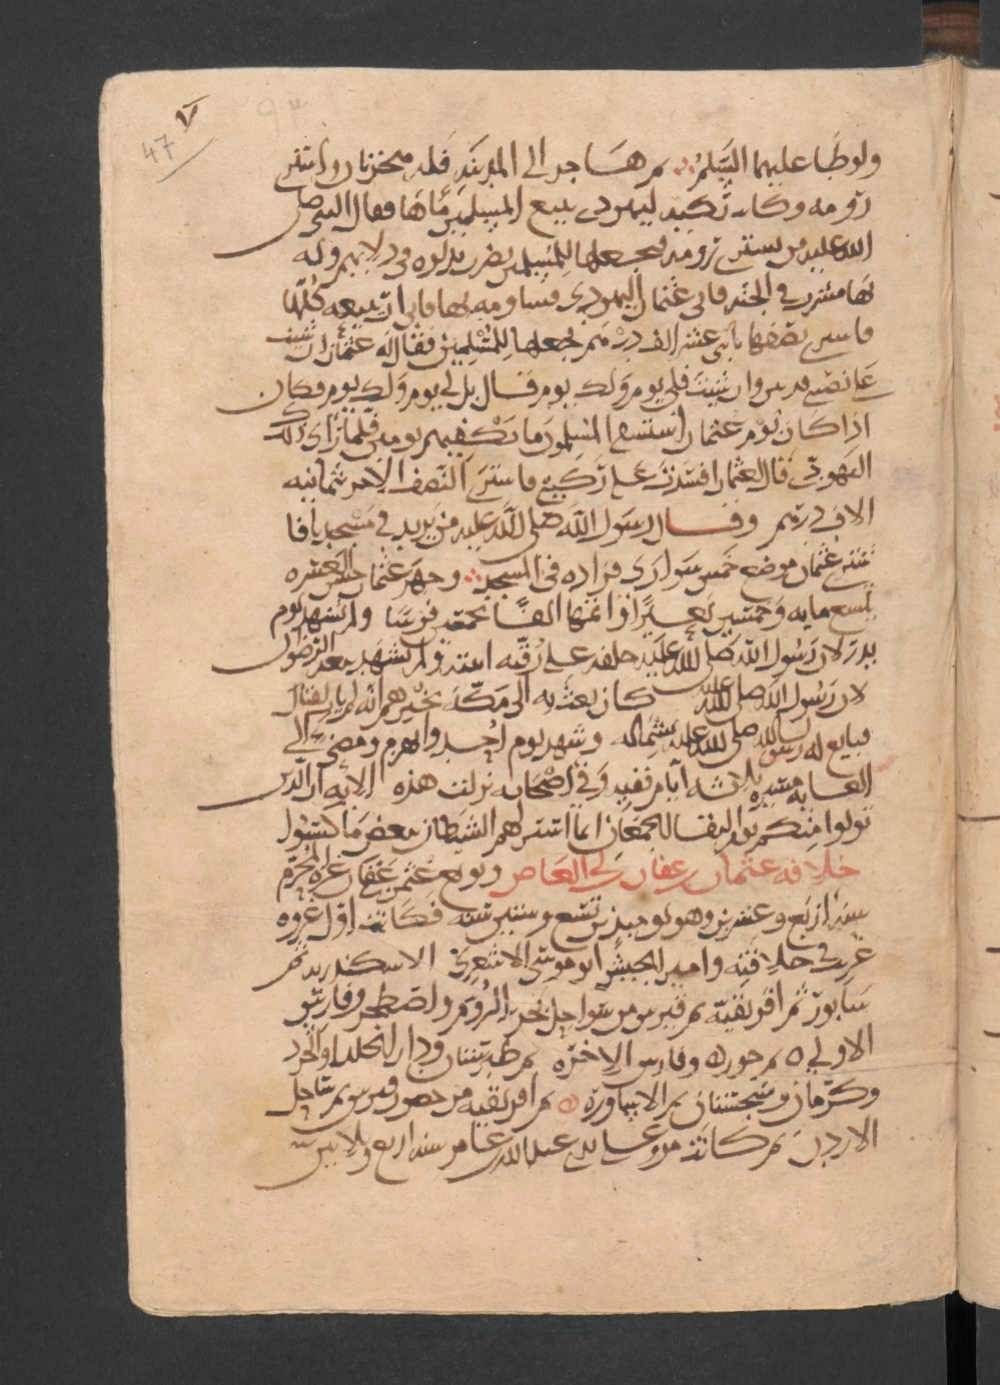 ٧
47
ولوطا عليهما السلم ثم هاجر الى المدينه فله هجرتان واشترى
رومه وكانت ركيه ليهودى يبيع المسلمين ماها فقال النبى صلى
الله عليه من يشترى رومه فيجعلها للمسلمين يضرب بدلوه فى دلايهم وله
بها مشرب فى الجنه فاتى عثمان اليهودى فساومه بها فابى ان يبيعه كلها
فاشترى نصفها باثنى عشر الف درهم فجعلها للمسلمين فقال له عثمان ان شيت
على نصيبى قرنين وان شيت فلى يوم ولك يوم قال بل لى يوم ولك يوم فكان
اذا كان يوم عثمان استسقى المسلمون ما يكفيهم يومين فلما راى ذلك
اليهودى قال لعثمان افسدت على ركيتى فاشترى النصف الاخر بثمانيه
الاف درهم وقال رسول الله صلى الله عليه من يزيد فى مسجدنا فا
شترى عثمان موضع خمس سوارى فزاده فى المسجد وجهز عثمان جيش العسره
بتسع مايه وخمسين بعيرا واتمها الفا بخمسين فرسا ولم يشهد يوم
بدر لان رسول الله صلى الله عليه خلفه على رقيه ابنته ولم يشهد بيعه الرضوان
لان رسول الله صلى الله عليه كان بعث به الى مكه يخبرهم انه لم يات لقتال
فبايع له رسول الله صلى الله عليه بشماله وشهد يوم احد وانهزم ومضى الى
الغابه مسيره ثلاثه ايام ففيه وفى اصحابه نزلت هذه الايه ان الذين
تولوا منكم يوم التقا الجمعان انما استزلهم الشيطان ببعض ما كسبوا
خلافه عثمان بن عفان بن ابى العاص وبويع عثمن بن عفان غره المحرم
سنه اربع وعشرين وهو يوميذ بن تسع وستين سنه فكانت اول غزوه
غزيت فى خلافته وامير الجيش ابو موسى الاشعرى الاسكندريه ثم
سابور ثم افريقيه ثم قبرس من سواحل بحر الروم واصطخر وفارس
الاولى ثم جور وفارس الاخره ثم طبرستان ودارابجرد
وكرمان وسجستان ثم الاساوره ثم افريقيه من حصن قبرس ثم ساحل
الاردن ثم كانت مرو على يدى عبد الله بن عامر سنه اربع وثلاثين